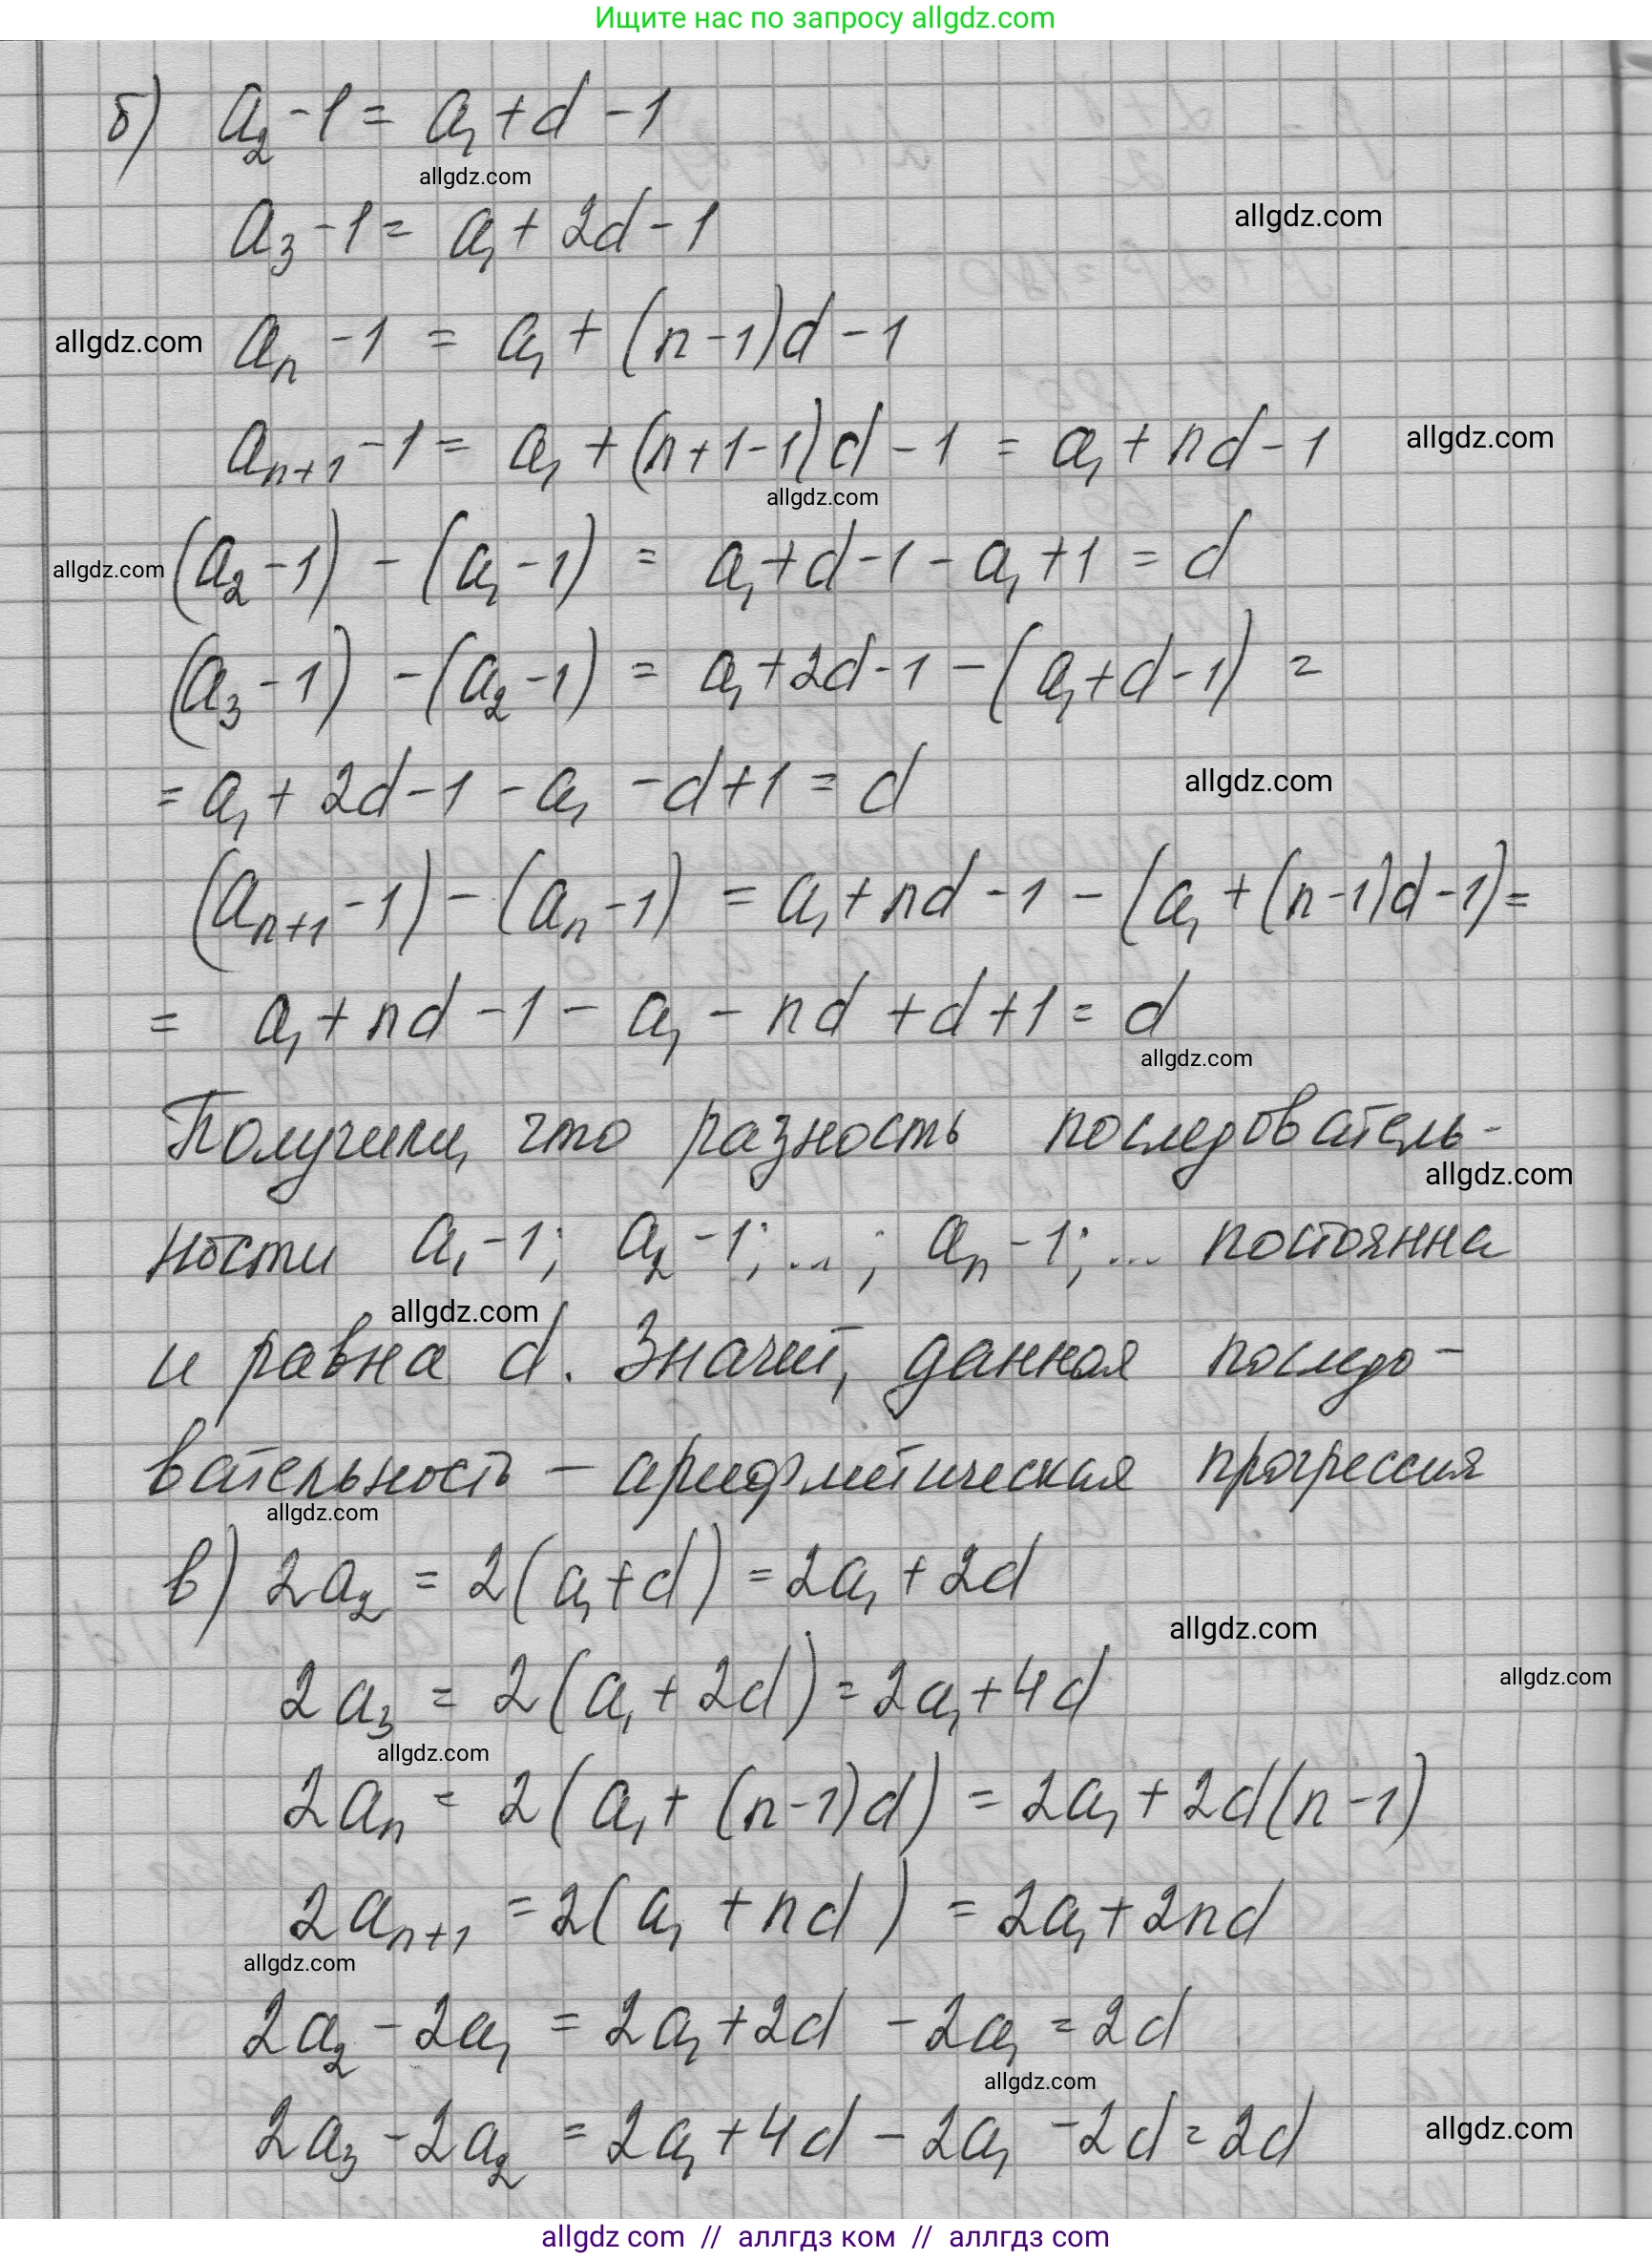 Ищите нас по запросу allgdz.com
б) a₂ - 1 = a₁ + d - 1
allgdz.com
a₃ - 1 = a₁ + 2d - 1
allgdz.com
allgdz.com
aₙ - 1 = a₁ + (n-1)d - 1
aₙ₊₁ - 1 = a₁ + (n+1-1)d - 1 = a₁ + nd - 1
allgdz.com
allgdz.com
allgdz.com
(a₂ - 1) - (a₁ - 1) = a₁ + d - 1 - a₁ + 1 = d
(a₃ - 1) - (a₂ - 1) = a₁ + 2d - 1 - (a₁ + d - 1) =
= a₁ + 2d - 1 - a₁ - d + 1 = d
allgdz.com
(aₙ₊₁ - 1) - (aₙ - 1) = a₁ + nd - 1 - (a₁ + (n-1)d - 1) =
= a₁ + nd - 1 - a₁ - nd + d + 1 = d
allgdz.com
Получили, что разность последователь-
allgdz.com
ности a₁ - 1; a₂ - 1; ...; aₙ - 1; ... постоянна
allgdz.com
и равна d. Значит, данная последо-
вательность – арифметическая прогрессия
allgdz.com
в) 2a₂ = 2(a₁ + d) = 2a₁ + 2d
allgdz.com
2a₃ = 2(a₁ + 2d) = 2a₁ + 4d
allgdz.com
allgdz.com
2aₙ = 2(a₁ + (n-1)d) = 2a₁ + 2d(n-1)
2aₙ₊₁ = 2(a₁ + nd) = 2a₁ + 2nd
allgdz.com
2a₂ - 2a₁ = 2a₁ + 2d - 2a₁ = 2d
allgdz.com
2a₃ - 2a₂ = 2a₁ + 4d - 2a₁ - 2d = 2d
allgdz.com
allgdz com // аллгдз ком // аллгдз com